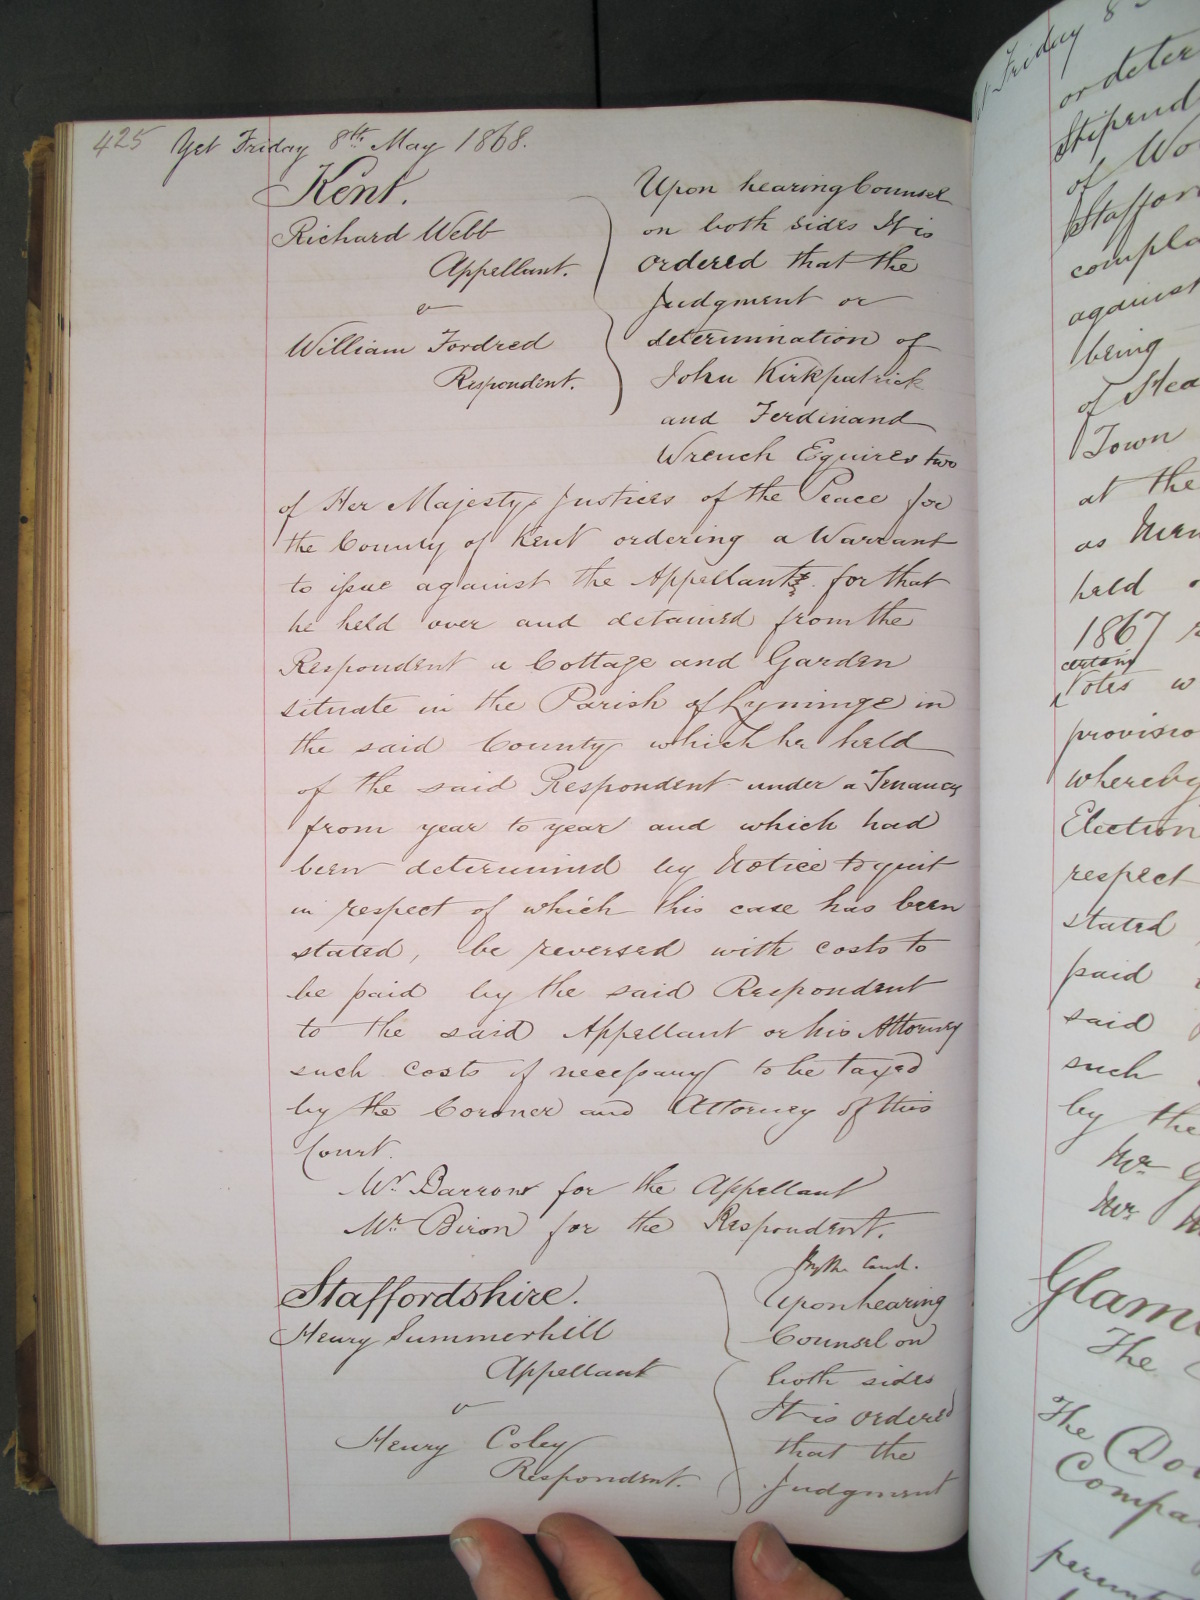 425 Yet Friday 8th May 1868.
Kent.
Richard Webb
Appellant.
v
William Fordred
Respondent.
Upon hearing Counsel
on both sides It is
ordered that the
Judgment or
determination of
John Kirkpatrick
and Ferdinand
Wrench Equires two
of Her Majestys Justices of the Peace for
the County of Kent ordering a Warrant
to issue against the Appellant for that
he held over and detained from the
Respondent a Cottage and Garden
situate in the Parish of Lyminge in
the said County which he held
of the said Respondent under a Tenancy
from year to year and which had
been determined by Notice to quit
in respect of which this case has been
stated, be reversed with costs to
be paid by the said Respondent
to the said Appellant or his Attorney
such costs if necessary to be taxed
by the Coroner and Attorney of this
Court.
Mr Barrow for the Appellant
Mr Biron for the Respondent.
Staffordshire.
Henry Summerhill
Appellant
v
Henry Coley
Respondent.
Upon hearing
Counsel on
both sides
It is ordered
that the
Judgment
Friday 8
or deter
Stipend
of Wo
Stafford
compla
against
being
of
Town
at the
as
held
1867
certain
Votes w
provisio
whereby
Election
respect
stated
paid
said
such
by the
Mr
Mr
Glam
The
The Do
Compa